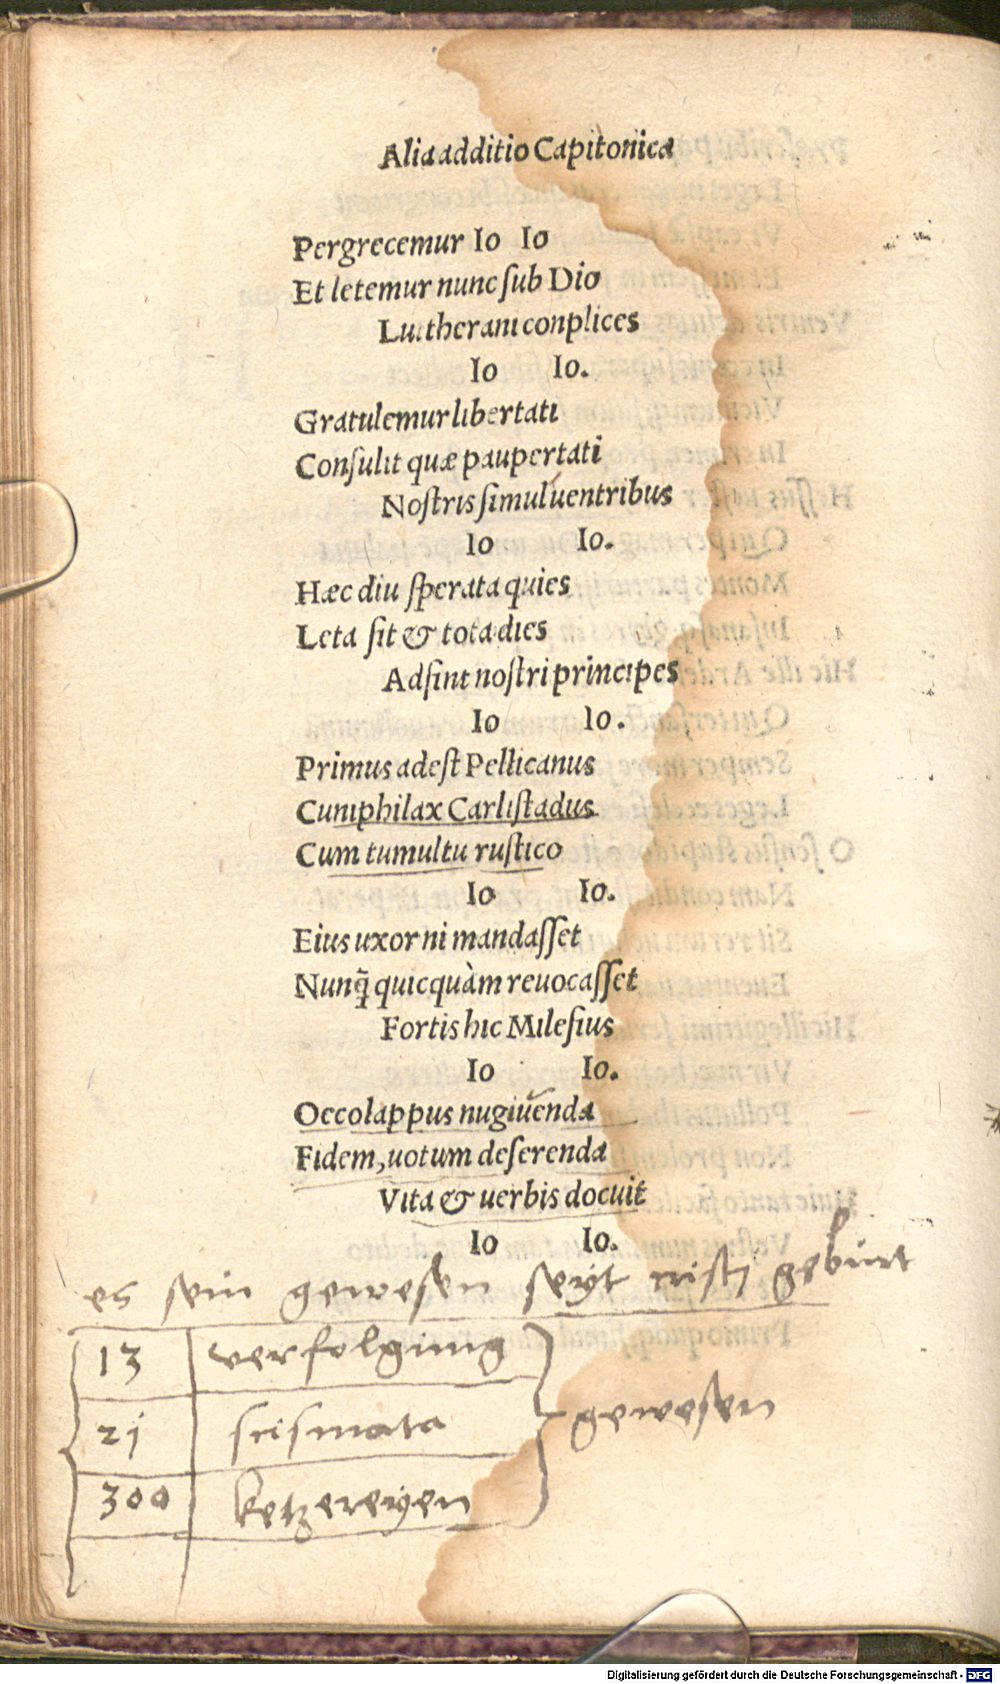 Alia additio Capitonica
Pergrecemur Io Io
Et letemur nunc ſub Dio
Lutherani conplices
Io Io.
Gratulemur libertati
Conſulit quæ paupertati
Noſtris ſimul uentribus
Io Io.
Hæc diu ſperata quies
Leta ſit & tota dies
Adſint noſtri principes
Io Io.
Primus adeſt Pellicanus
Cum philax Carliſtadus
Cum tumultu ruſtico
Io Io.
Eius uxor ni mandaſſet
Nunq̃ quicquàm reuocaſſet
Fortis hic Mileſius
Io Io.
Occolappus nugiuenda
Fidem, uotum deſerenda
Vita & uerbis docuit
Io Io.
es sein gewesen seyt cristj geburt
13 verfolgung
21 scismata gewesen
300 ketzereyen
Digitalisierung gefördert durch die Deutsche Forschungsgemeinschaft - DFG